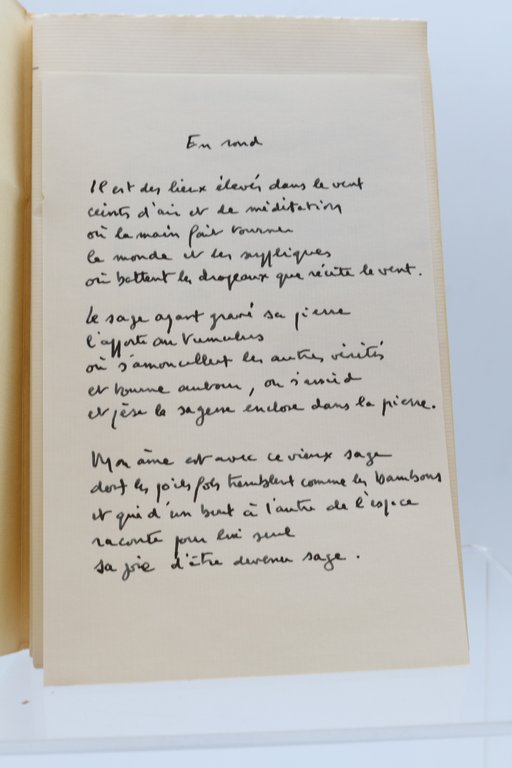 En rond
Il est des lieux élevés dans le vent
ceints d'air et de méditation
où la main fait tourner
le monde et les suppliques
où battent les drapeaux que récite le vent.
Le sage ayant gravé sa pierre
l'apporte au tumulus
où s'amoncellent les autres vérités
et tourne autour, ou s'assied
et pèse la sagesse enclose dans la pierre.
Mon âme est avec ce vieux sage
dont les poils fols tremblent comme les bambous
et qui d'un bout à l'autre de l'espace
raconte pour lui seul
sa joie d'être devenu sage.